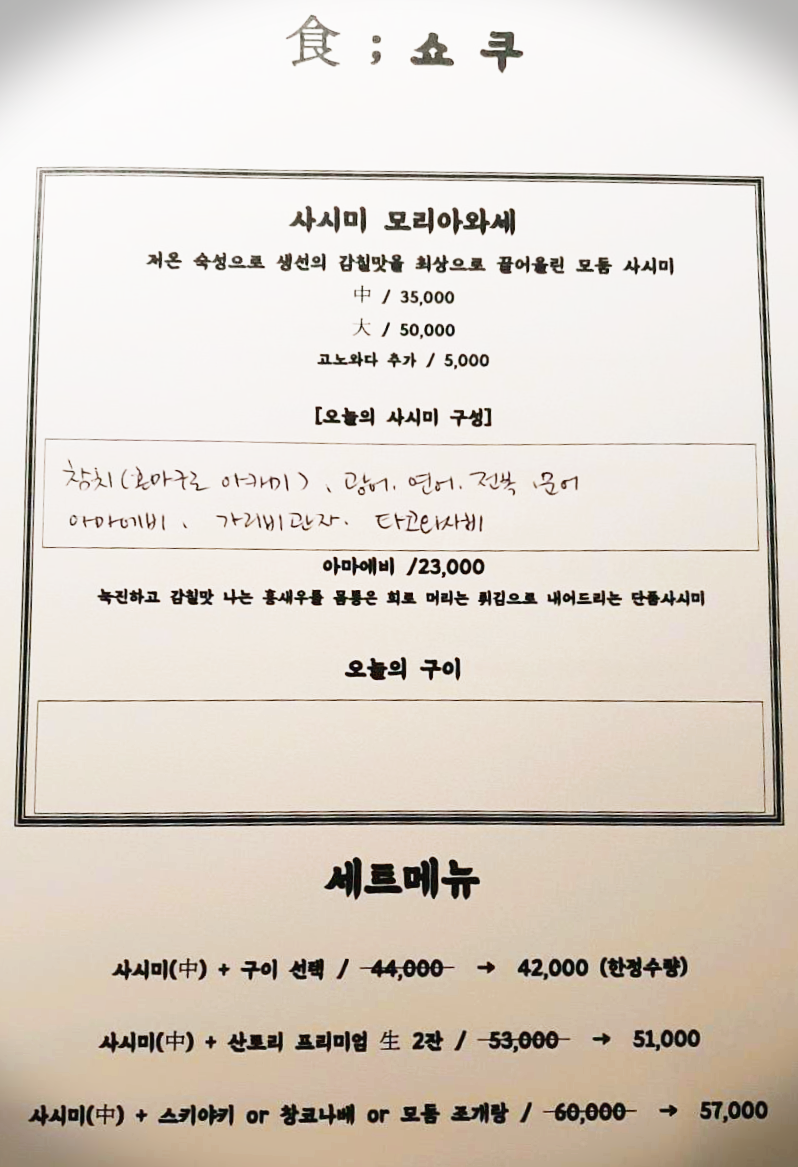 食 ; 쇼쿠
사시미 모리아와세
저온 숙성으로 생선의 감칠맛을 최상으로 끌어올린 모둠 사시미
中 / 35,000
大 / 50,000
고노와다 추가 / 5,000
[오늘의 사시미 구성]
참치(혼마구로 아카미), 광어, 연어, 전복, 문어
아마에비, 가리비관자, 타코와사비
아마에비 /23,000
녹진하고 감칠맛 나는 홍새우를 몸통은 회로 머리는 튀김으로 내어드리는 단품사시미
오늘의 구이
세트메뉴
사시미(中) + 구이 선택 / 44,000 → 42,000 (한정수량)
사시미(中) + 산토리 프리미엄 生 2잔 / 53,000 → 51,000
사시미(中) + 스키야키 or 창코나베 or 모둠 조개탕 / 60,000 → 57,000